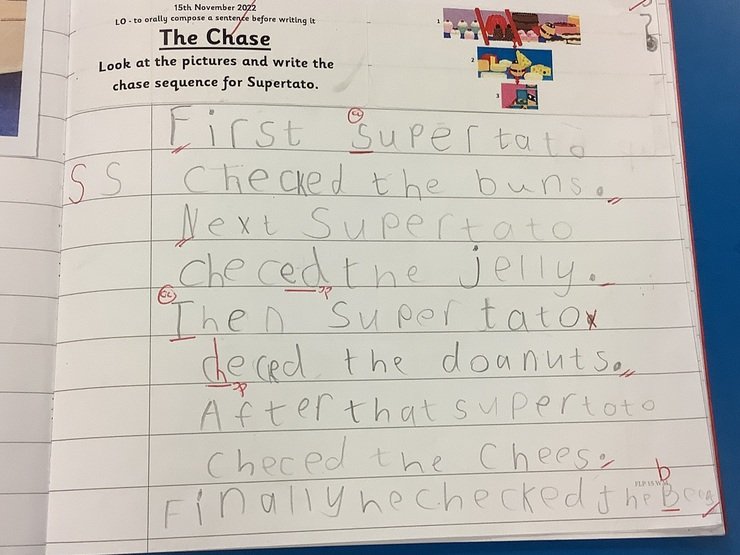 15th November 2022
LO - to orally compose a sentence before writing it
The Chase
Look at the pictures and write the
chase sequence for Supertato.
1
2
3
First Supertato
S S checked the buns.
Next Supertato
checed the jelly.
Then Supertato
checed the doanuts.
After that supertoto
checed the Chees.
Finally he checked the
b